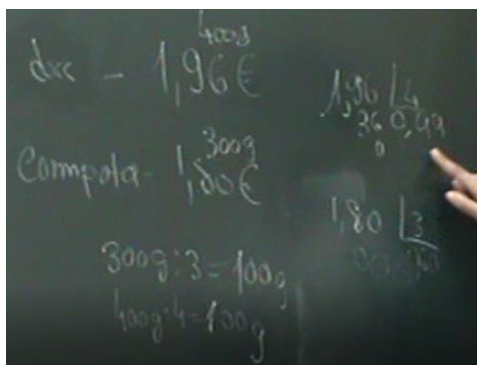 400g
doce - 1,96€
300g
Compota - 1,80€
300g:3=100g
400g:4=100g
1,96 | 4
36 0,49
0
1,80 | 3